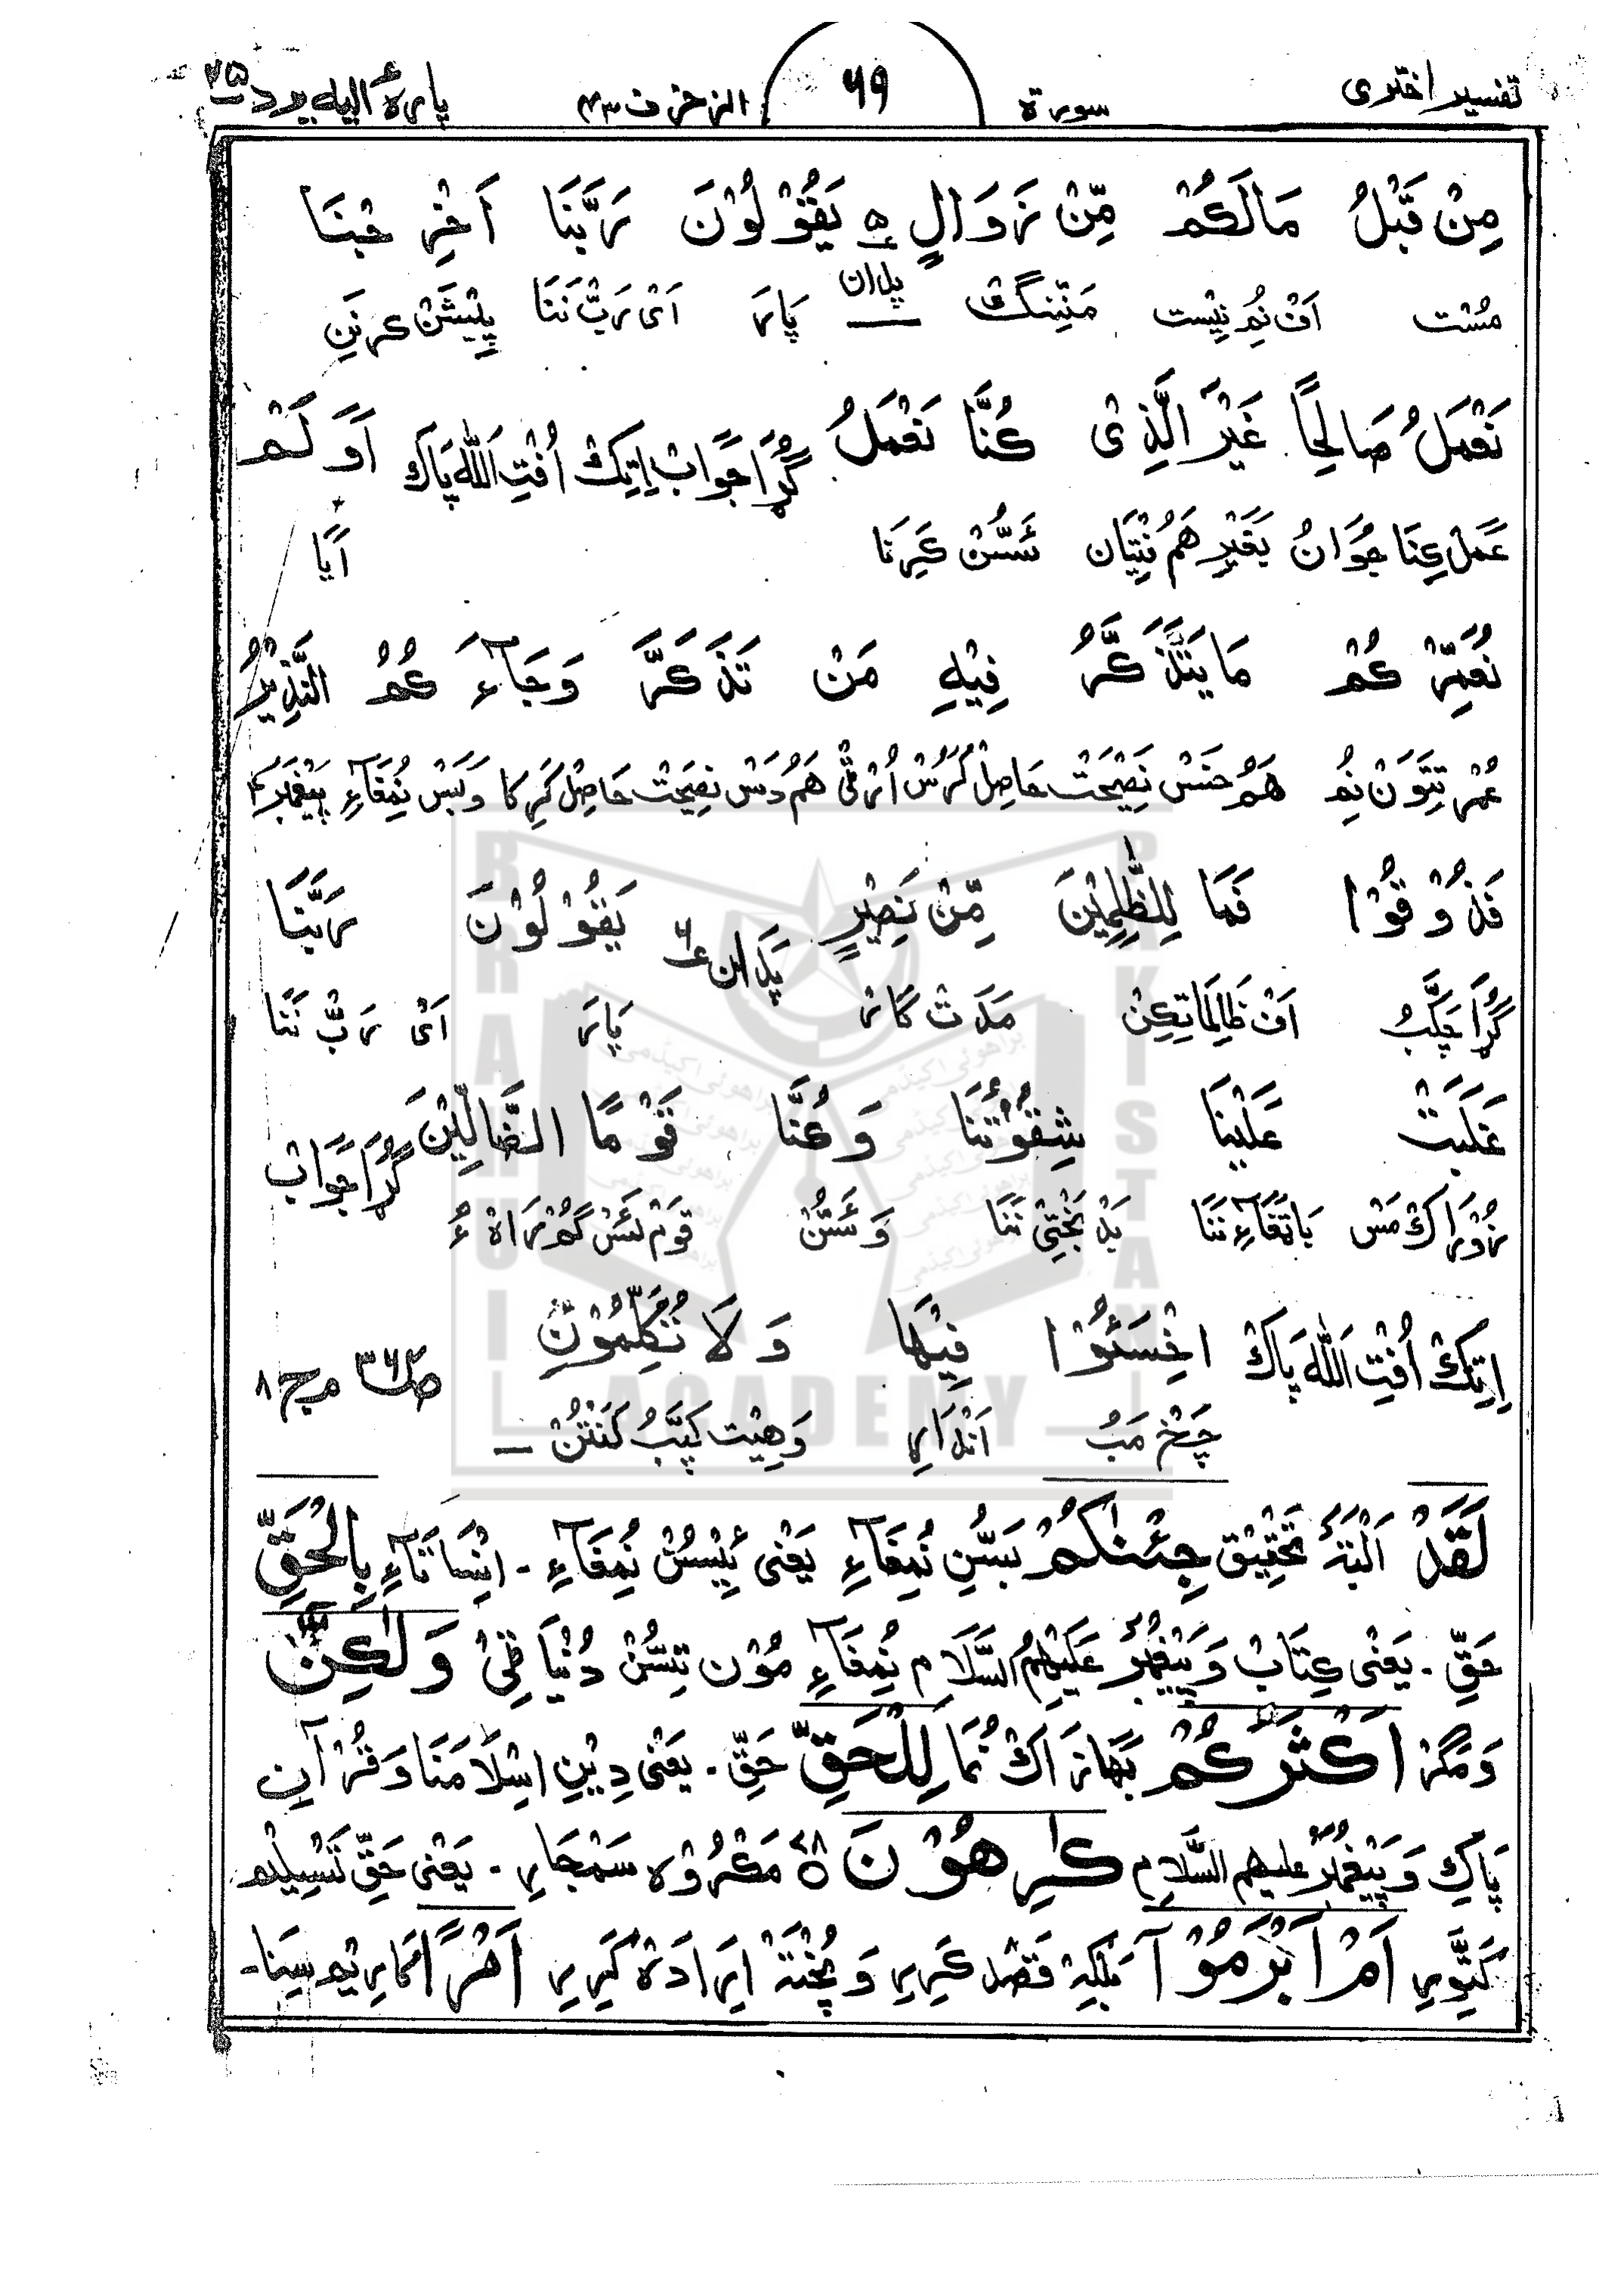 تفسیر اختری سورة ۶۹ الزخرف ۴۳ پارهٔ الیه یرد ۲۵
مِنْ قَبْلُ مَالَكُمْ مِّنْ زَوَالٍ ۵ يَقُوْلُوْنَ رَبَّنَا اَخْرِ جْنَا
مُسْت اَفْ نُم نِیْست مَنِّنِنگ پدان پَارَ اَیْ رَبّ نَنَا پِیْشَنْ کر نَنِ
نَعْمَلُ صَالِحًا غَيْرَ الَّذِىْ كُنَّا نَعْمَلُ گُڑَا جَوَابْ اِتِکْ اُفْتِ اَللّٰه پَاك اَوَ لَمْ
عَمَل کِنَا جُوَانُ بَغَیْرِ هَمُ نِیَان ئَسُّنْ کَرِنَا اَیَا
نُعَمِّرْ كُمْ مَا يَتَذَكَّرُ فِيْهِ مَنْ تَذَكَّرَ وَجَآءَ كُمُ النَّذِيْرُ
عُمْر تِتَوَنْ نُم هَمُ حنَسْ نَصِیْحَتْ حَاصِلْ کُرُسْ اُرْٹی هَمُ دَسْ نصِیَحتْ حَاصِلْ کَرِ کا وَبَسْ نُمَغَآءِ پَیْغَمْبَر
فَذُوْقُوْا فَمَا لِلظّٰلِمِيْنَ مِّنْ نَصِيْرٍ پَدَان ۶ يَقُوْلُوْنَ رَبَّنَا
گُڑَا چَکَّبُ اَفْ ظَالِمَاتِکِنْ مَدَتْ گَار پَارَ اَیْ رَبّ نَنَا
غَلَبَتْ عَلَيْنَا شِقْوَتُنَا وَكُنَّا قَوْ مًا الضَّالِّيْنَ گُڑَا جَوَابْ
زورَاکْ مَسْ بَاتَغَآءِ نَنَا بَدْ بَخْتِیْ نَنَا وَ ئَسُّنْ قوَمْ ئَسْ گُمْرَاهْ ءُ
اِتِکْ اُفْتِ اَللّٰه پَاك اخْسَئُوْا فِيْهَا وَ لَا تُكَلِّمُوْنِ ص۳۶۲ مج ۸
چَخْ مَبُ اَنْدَارِ وَهِیْت کَپَّبُ کَنْتُنْ ــ
لَقَدْ اَلْبَتَّہ تَحْقِیْق جِئْنٰكُمْ بَسُّنِ نُمَغَآءِ یَعْنی بِیْسُسْ نُمَغَآءِ ۔ اِنْسَانَاتَآءِ بِالْحَقِّ
حَقِّ ۔ یَعْنی کِتَابْ وَپَیْغَمْبَرْ عَلَیْهِمُ السَّلَام نُمَغَآءِ مُوْن تِسُّنْ دُنْیَا ٹی وَلٰكِنَّ
وَمَگَرْ اَكْثَرَكُمْ بَهَازَ اکْ نُمَا لِلْحَقِّ حَقِّ ۔ یَعْنی دِیْنِ اِسْلَامَنَا وَ قُرْآنِ
پَاكِ وَ پَیْغَمْبَرْ علیهم السَّلَامِ كٰرِهُوْنَ ۷۸ مَکْرُوْه سَمْجَارِ ۔ یَعْنی حَقِّ تَسْلِیْم
کَتَّوِر اَمْ اَبْرَمُوْ آ بَلْکِہ قَصْد کَرِیر وَ پُخْتَہ اِرَادَہ کَرِیر اَمْرًا کَارِیْم سِنَا ۔
BRAHUI ACADEMY PAKISTAN